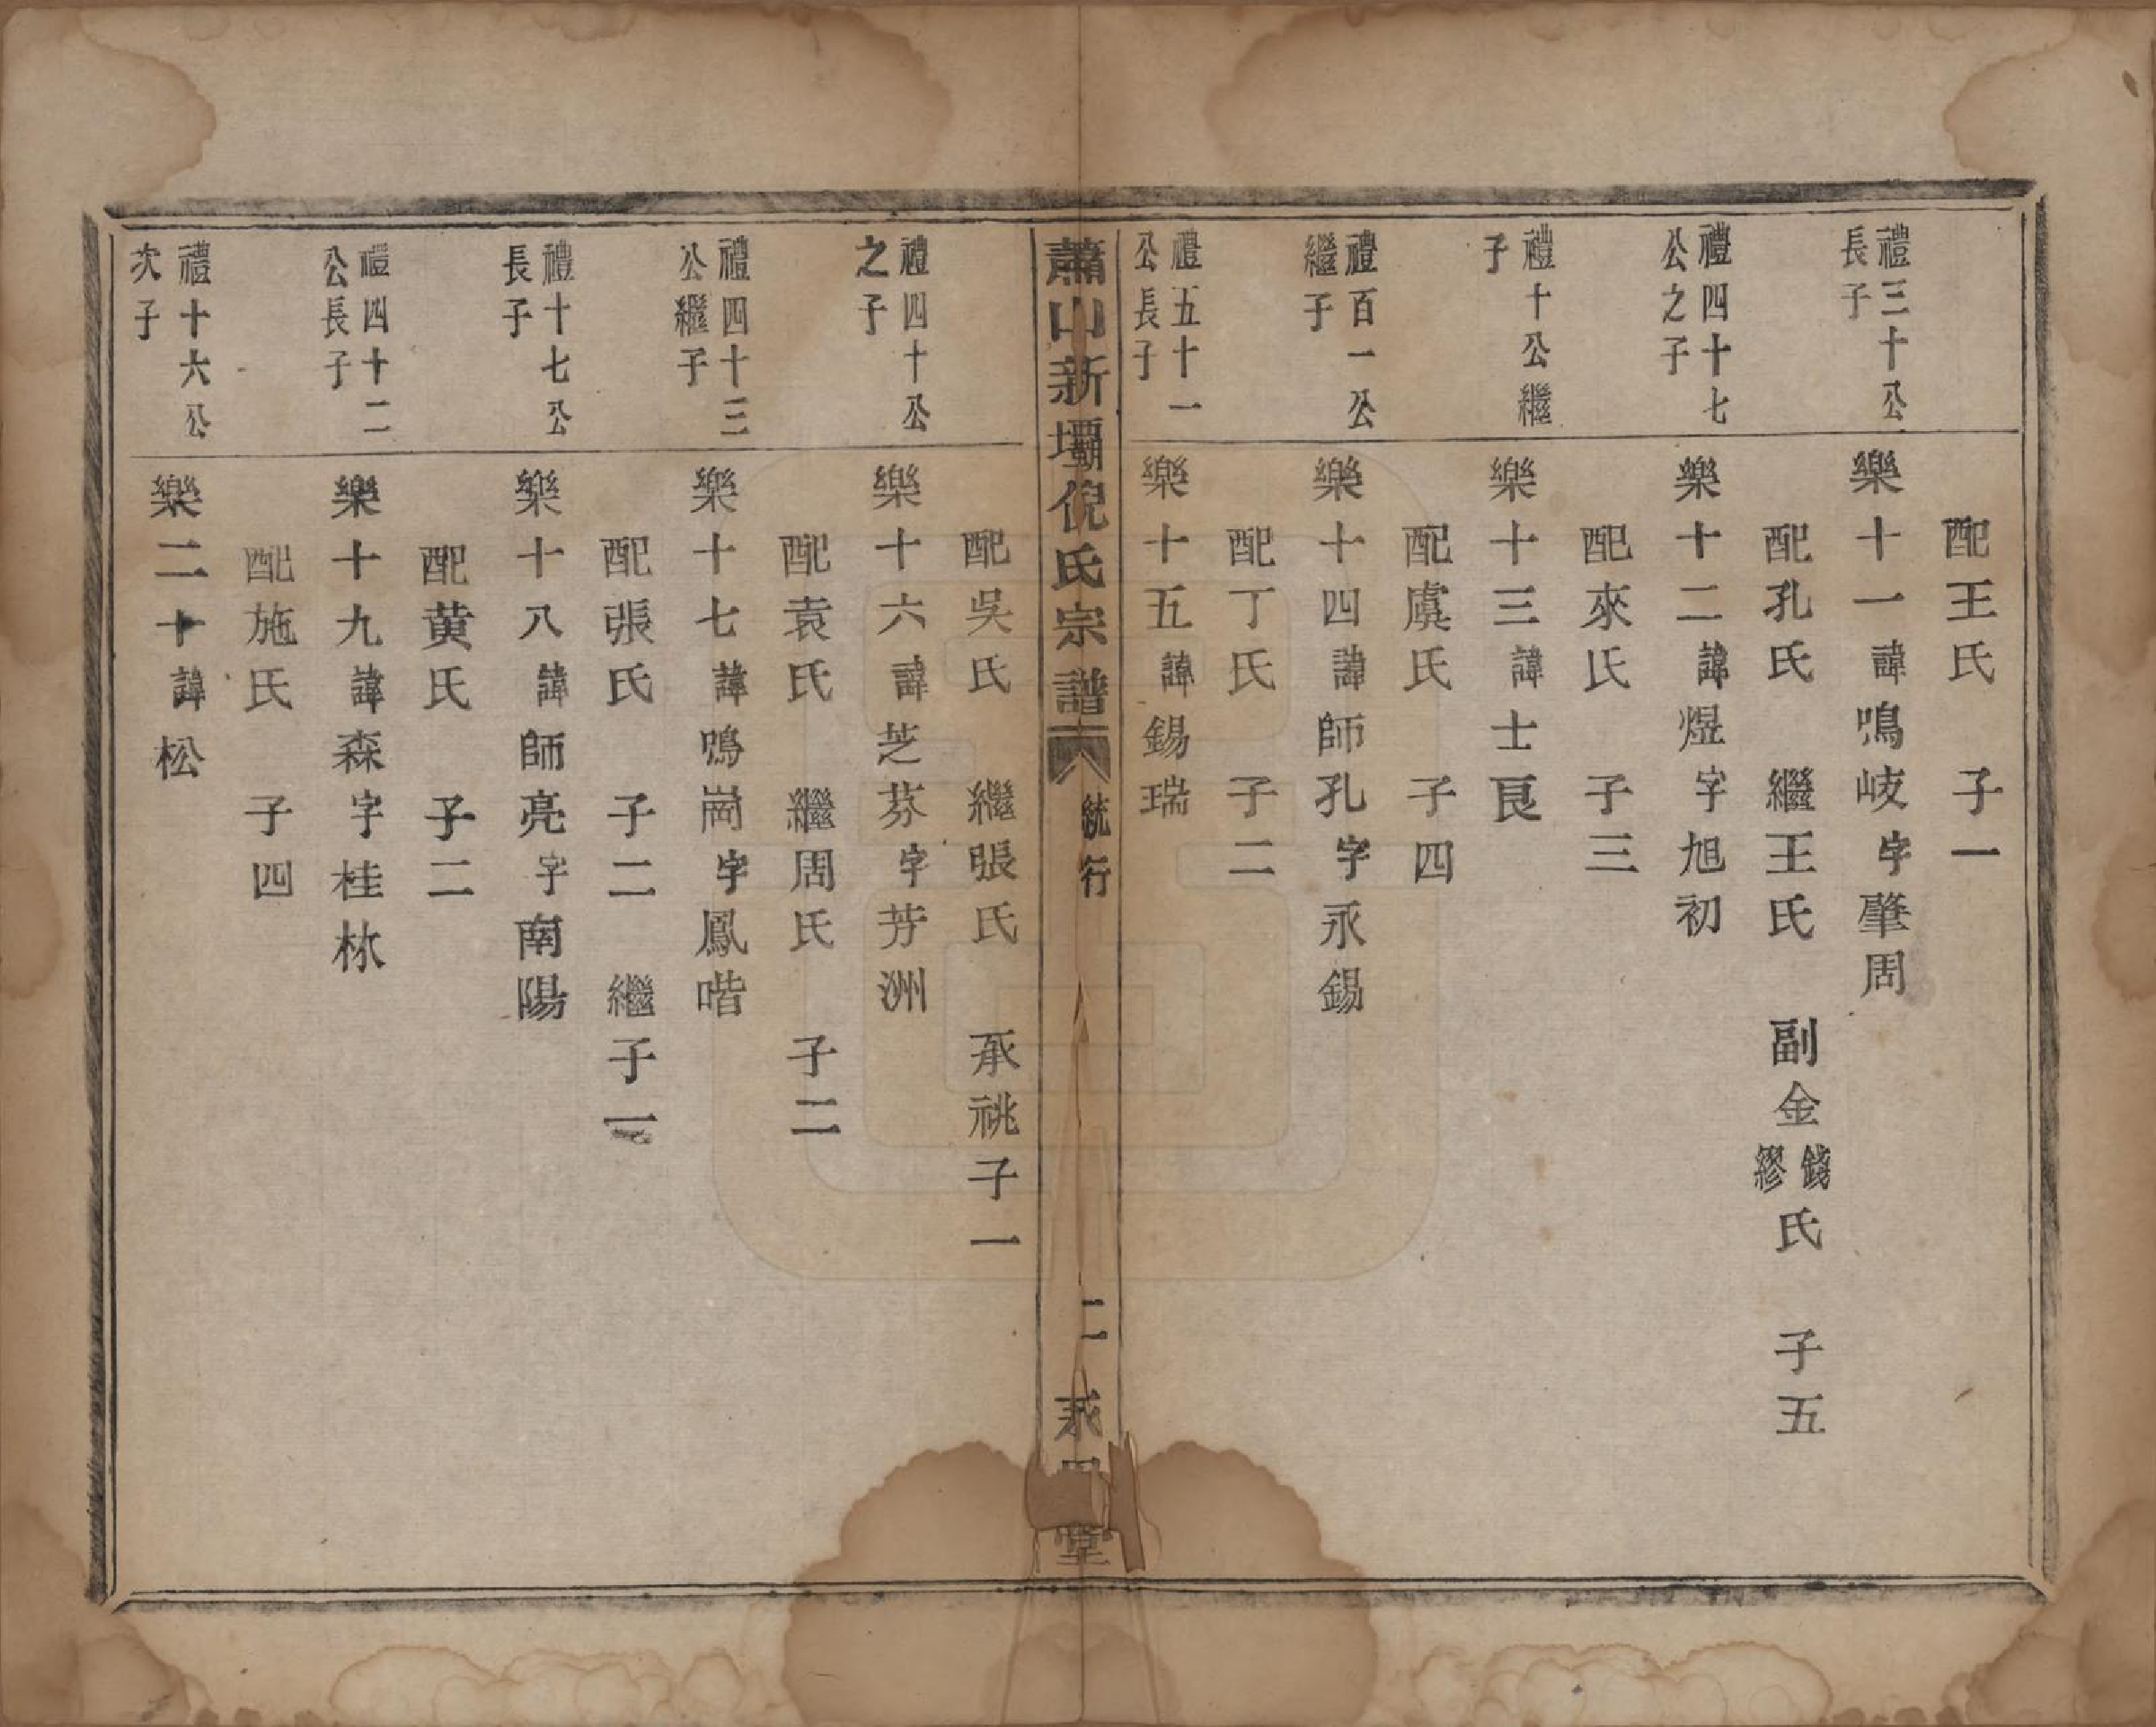 配王氏　子一
禮三十公長子
樂十一諱鳴岐字肇周
配孔氏　繼王氏　副金錢繆氏　子五
禮四十七公之子
樂十二諱煜字旭初
配來氏　子三
禮十公繼子
樂十三諱士良
配虞氏　子四
禮百一公繼子
樂十四諱師孔字永錫
配丁氏　子二
禮五十一公長子
樂十五諱錫瑞
蕭山新壩倪氏宗譜　統行　二　承　堂
配吳氏　繼張氏　承祧子一
禮四十公之子
樂十六諱芝芬字芳洲
配袁氏　繼周氏　子二
禮四十三公繼子
樂十七諱鳴崗字鳳喈
配張氏　子二　繼子一
禮十七公長子
樂十八諱師亮字南陽
配黃氏　子二
禮四十二公長子
樂十九諱森字桂林
配施氏　子四
禮十六公次子
樂二十諱松